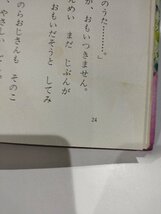 のうた……。」
が、おもいつきません。
めい　まだ　じぶんが
おもいだそうと　してみ
のらおじさんも　そのこ
、やさしい
24